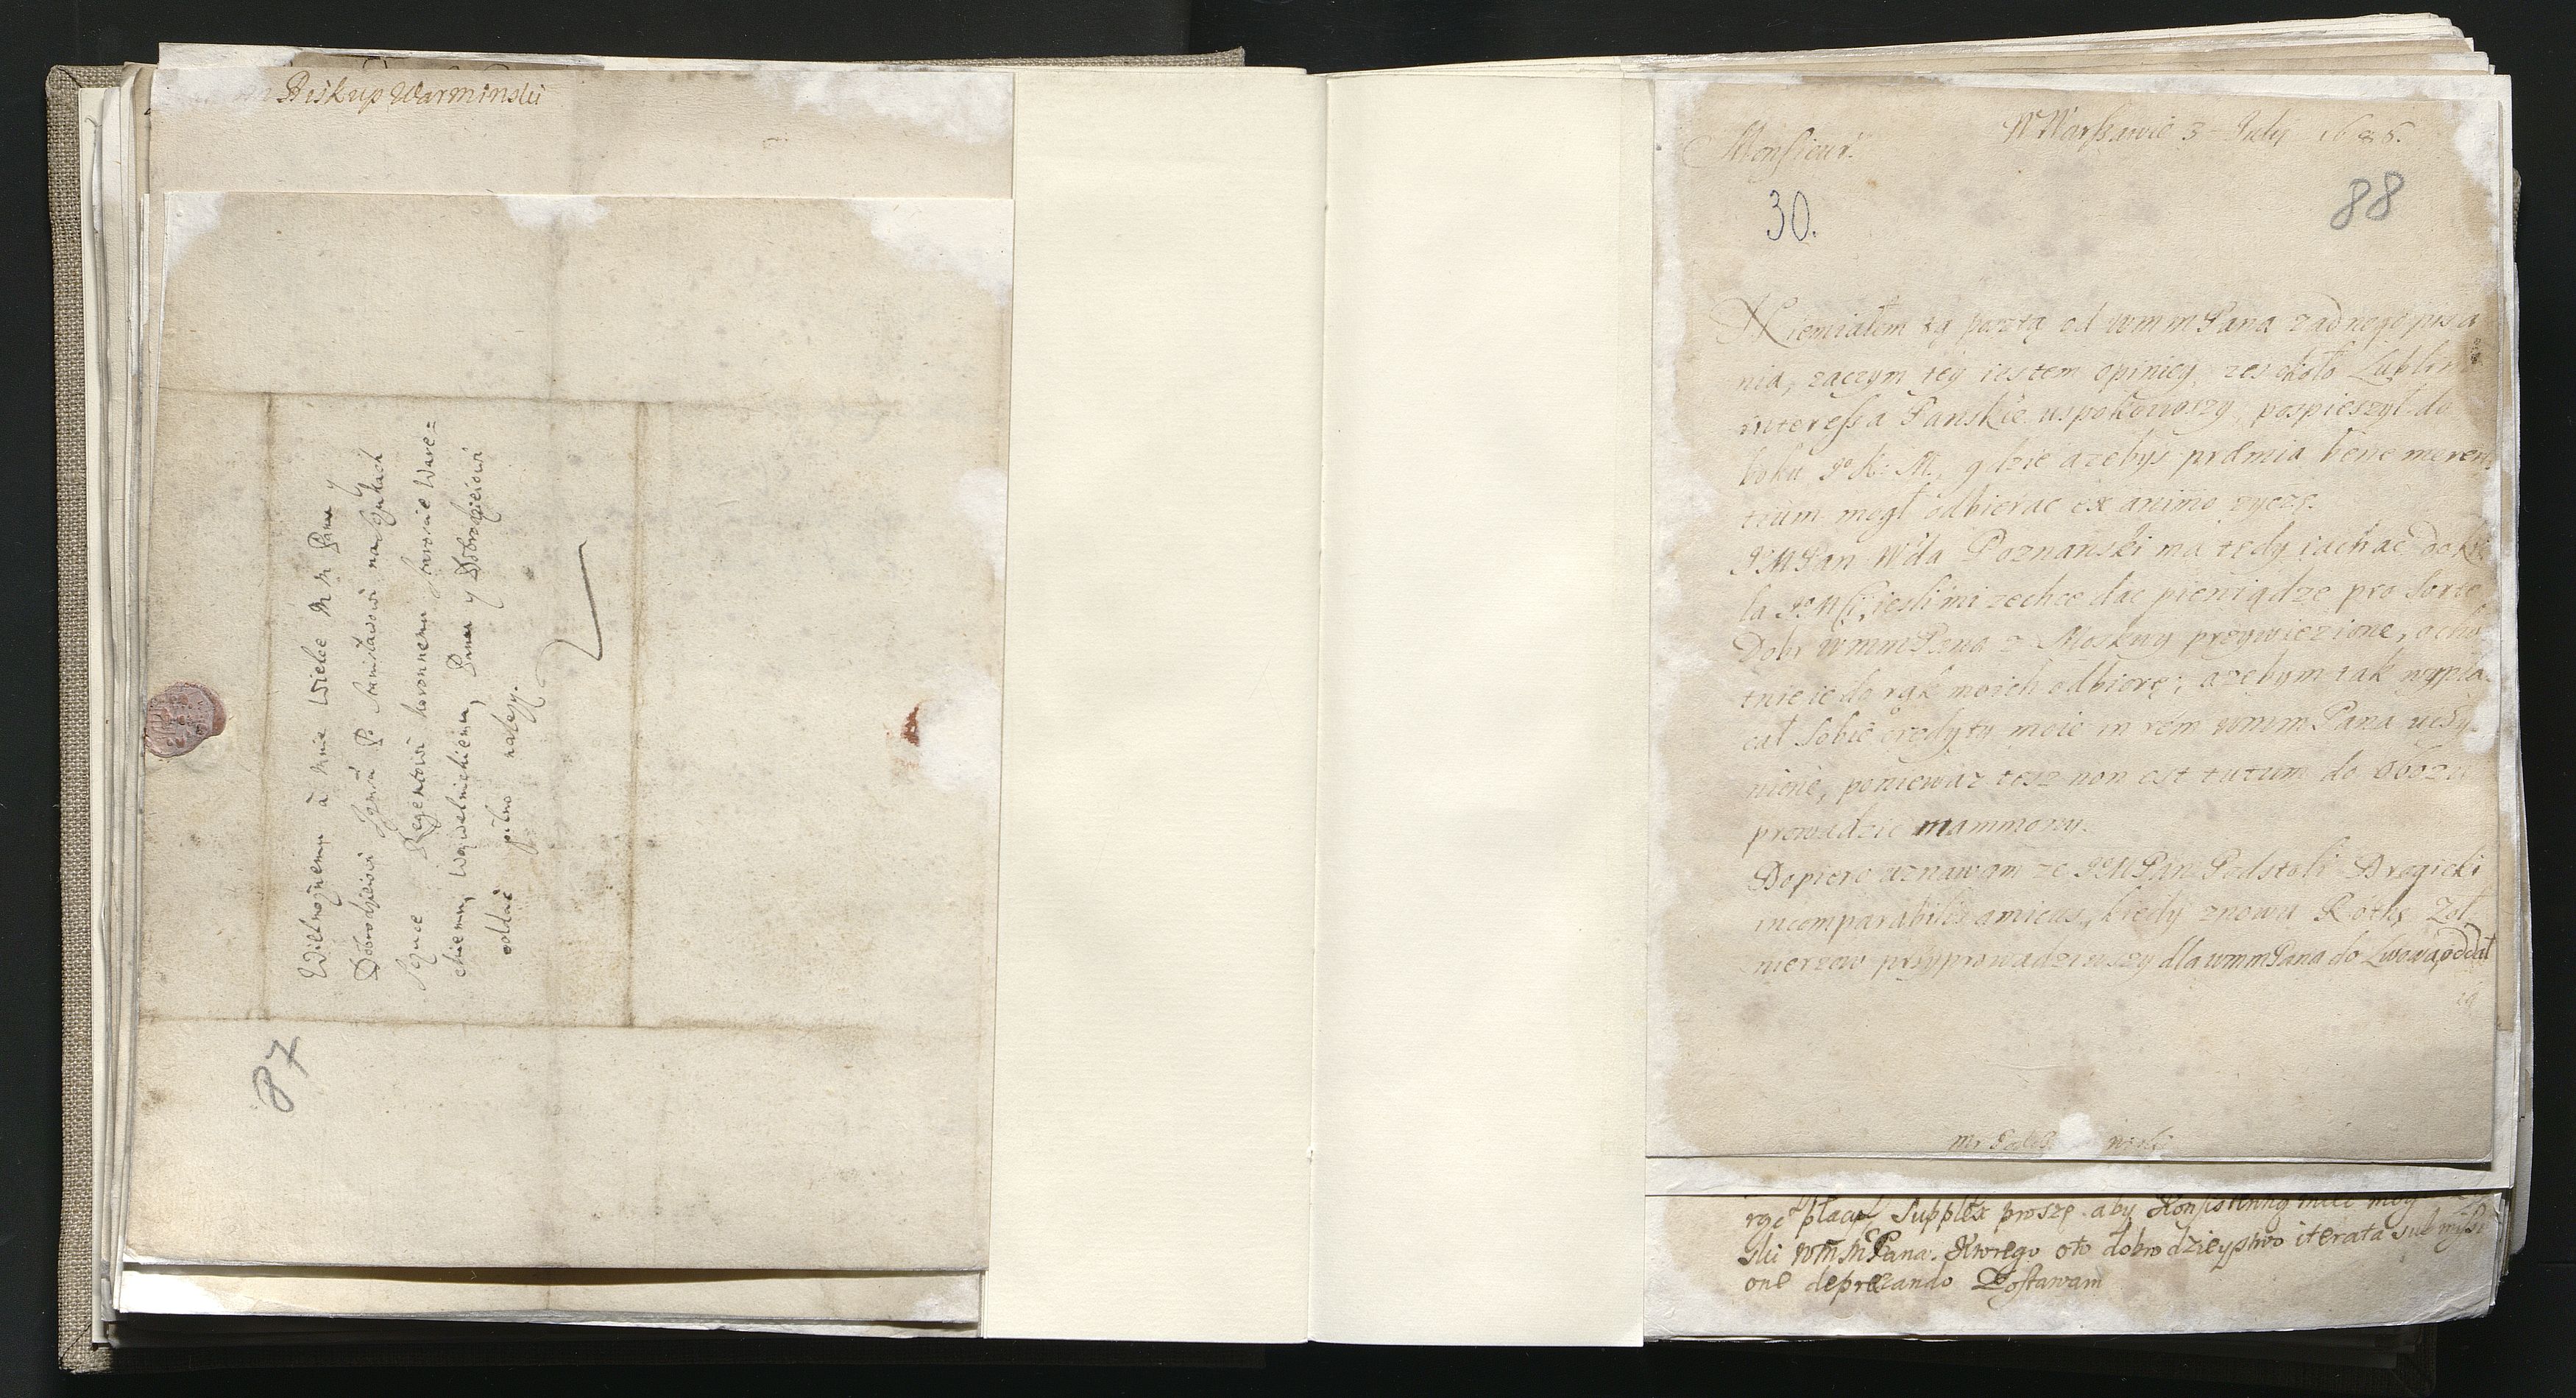 Biskup Warminski
Wielmoznemu a mnie Wielce M M Panu y
Dobrodzieiowi Jegmsci P Stanisławowi na Szukach
Szuce Regentowi koronnemu Staroscie Ware=
ckiemu, Wąwelnickiemu, Panu y Dobrodzieiowi
oddać pilno nalezy.
87
W Warszawie 3 July 1688.
Monsieur.
30.
88
Niemiałem tą pocztą od WmmPana zadnego pisa
nia, zaczym tey iestem opiniey, zes około Lublina
interessa Panskie uspokoiwszy, pospieszył do
boku Jo K: M., gdzie azebys præmia bene meren
tium mogł odbierac ex animo zyczę.
JoMPan Wda Poznanski ma tedy iachac do Kro
la JoMsci, iesli mi zechce dac pieniądze pro sorte
Dobr WmmPana z Moskwy przywiezione, ocho
tnie ie do rąk moich odbiorę; azebym tak wypła
cał sobie credyty moie in rem WmmPana uczy
nione, poniewaz tesz non est tutum do Obozu
prowadzic mammony.
Dopiero uznawam ze JoMPan Podstoli Drogicki
incomparabilis amicus, kiedy znowu Rothę Zoł
nierzow przyprowadziwszy dla WmmPana do Lwowa, oddał
ią
rgę płacą, Supplex proszę aby Konsistenną miec
ski WmMPana. Ktorego oto dobrodzieystwo iterata submissi
one deprecando Zostawam